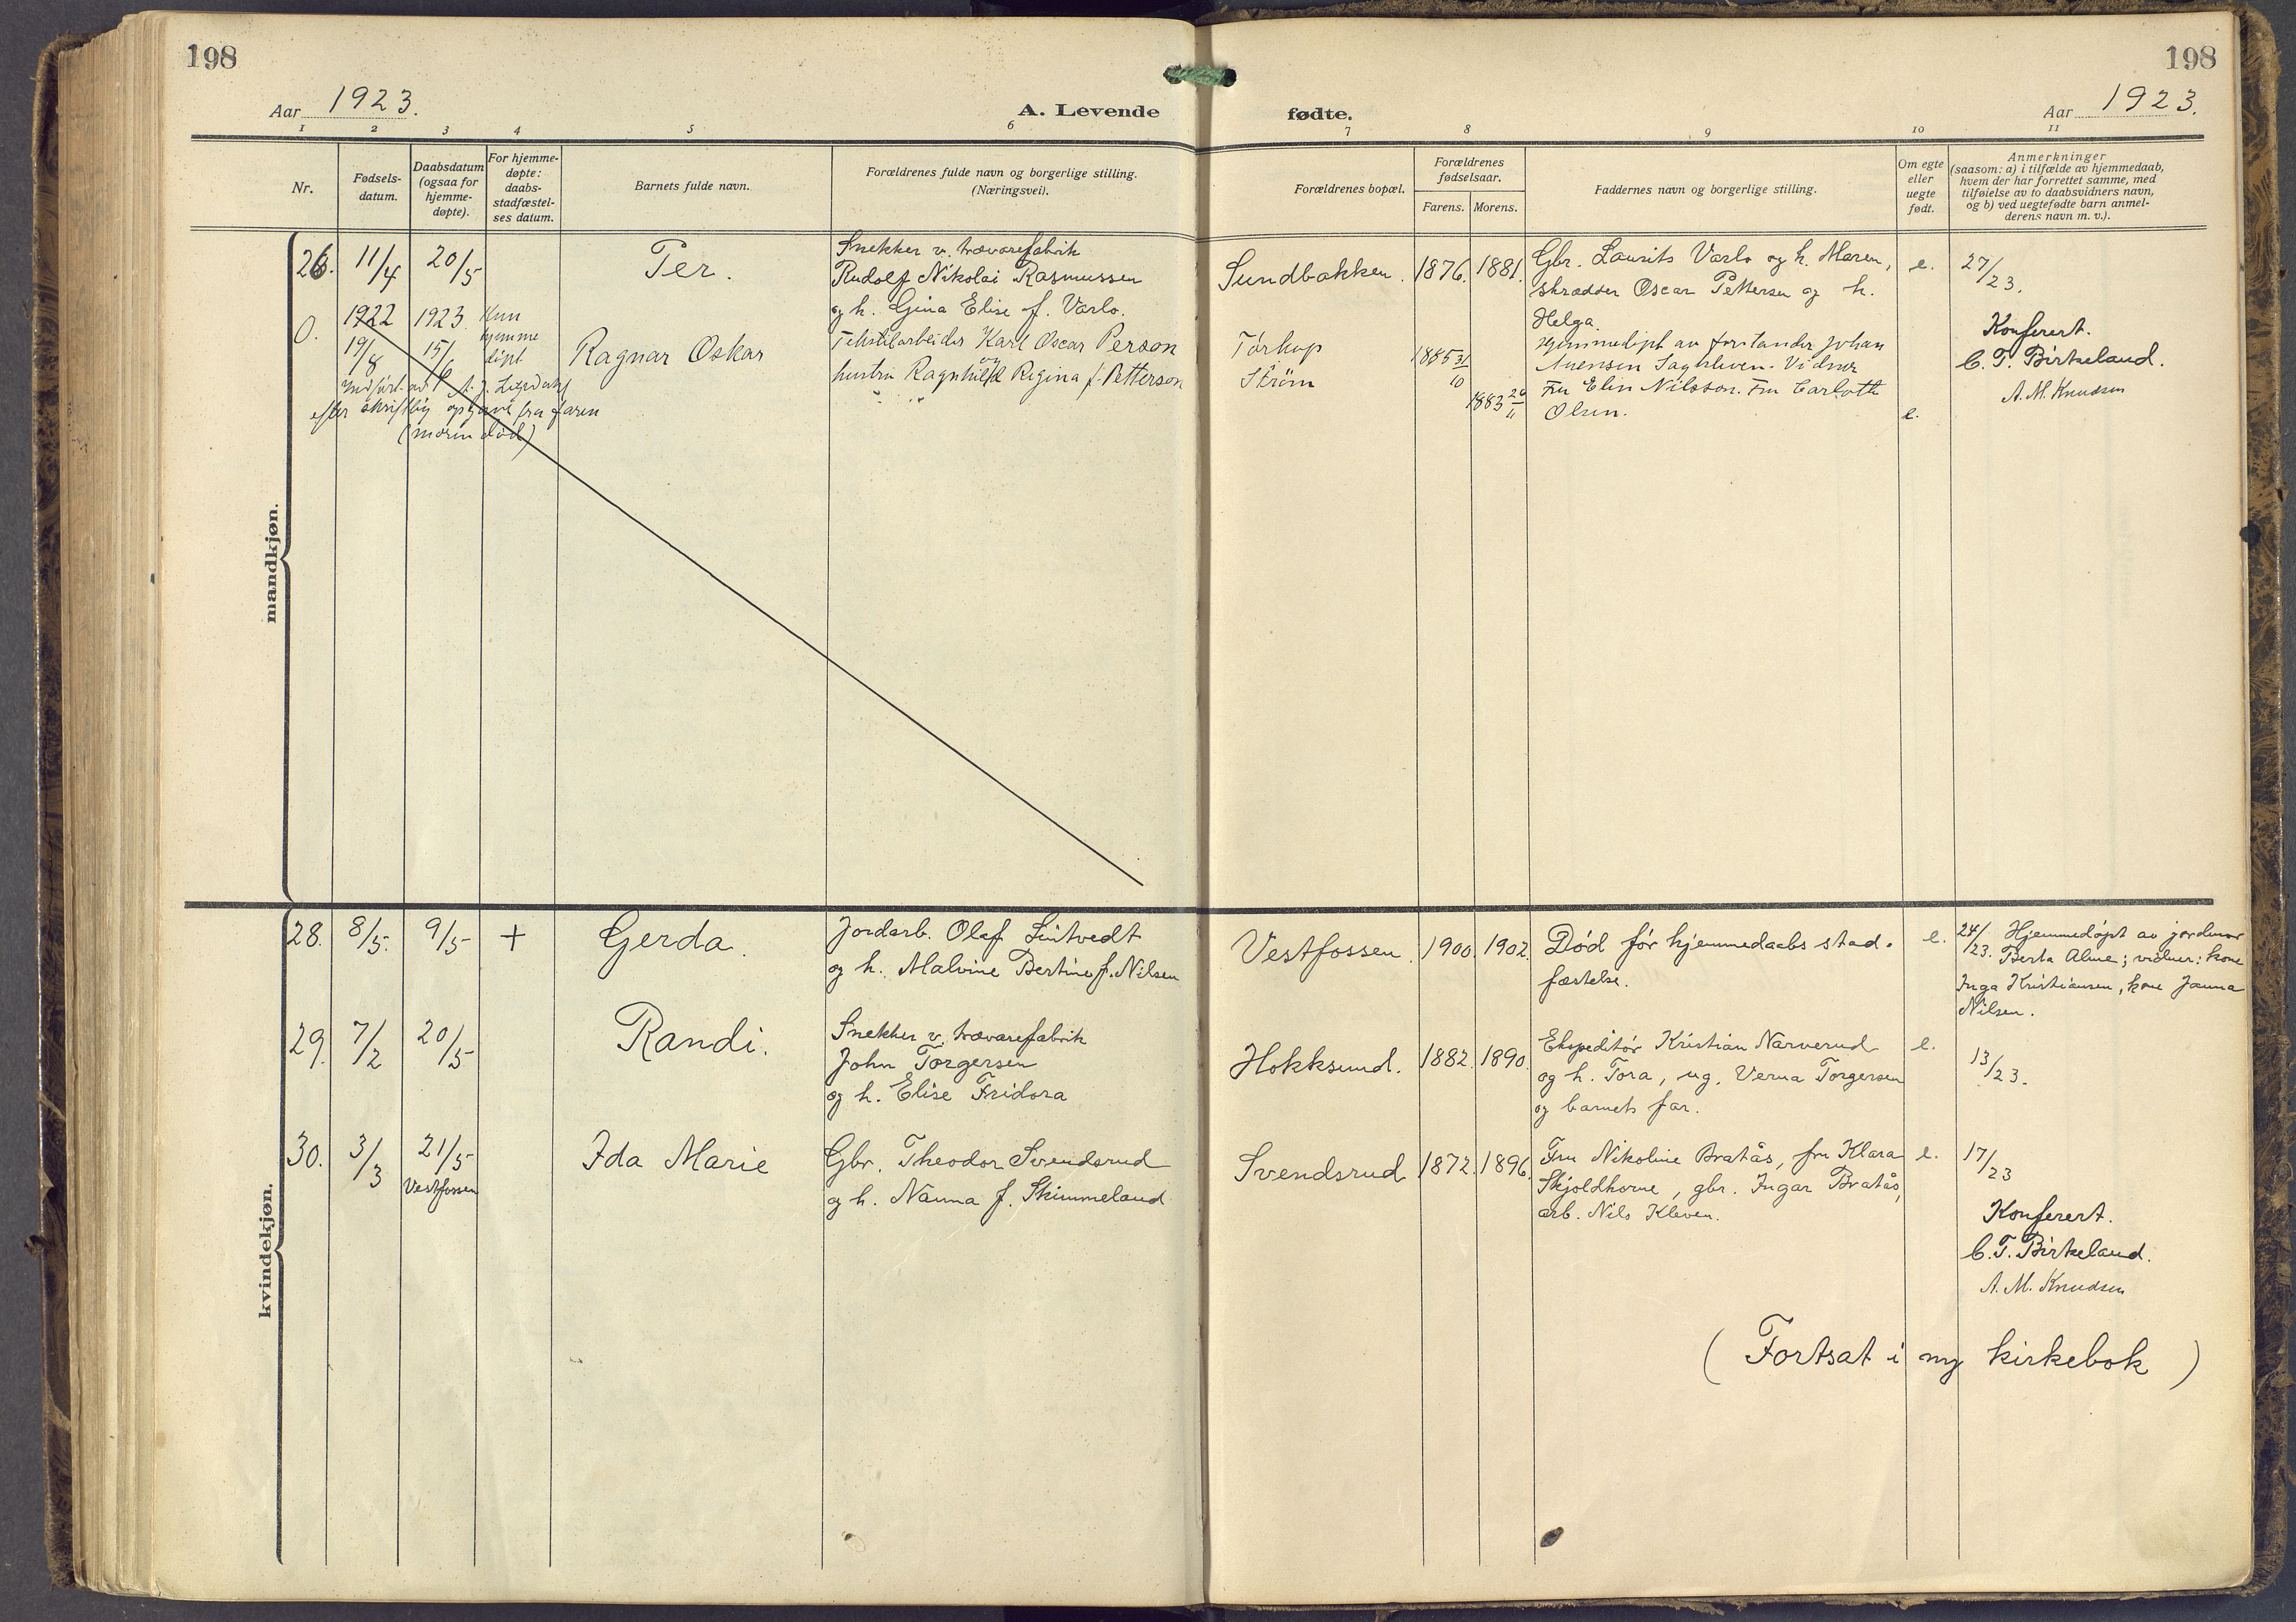 198
198
Aar 1923.
A. Levende
fødte.
Aar 1923.
1 2 3 4 5 6 7 8 9 10 11
Nr.
Fødsels-
datum.
Daabsdatum
(ogsaa for
hjemme-
døpte).
For hjemme-
døpte:
daabs-
stadfæstel-
ses datum.
Barnets fulde navn.
Forældrenes fulde navn og borgerlige stilling.
(Næringsvei).
Forældrenes bopæl.
Forældrenes
fødselsaar.
Farens. Morens.
Faddernes navn og borgerlige stilling.
Om egte
eller
uegte
født.
Anmerkninger
(saasom: a) i tilfælde av hjemmedaab,
hvem der har forrettet samme, med
tilføielse av to daabsvidners navn,
og b) ved uegtefødte barn anmel-
derens navn m. v.).
mandkjøn.
26. 11/4 20/5
Per.
Snekker v. trævarefabrik
Rudolf Nikolai Rasmussen
og h. Gina Elise f. Varlo.
Sundbakken. 1876. 1881.
Gbr. Laurits Varlo og h. Maren,
skrædder Oscar Pettersen og h.
Helga.
e.
27/23.
0. 1922 19/8
1923 15/6
Kun
hjemme
døpt
Ragnar Oskar
efter skriftlig opgave fra faren
(moren død)
Tekstilarbeider Karl Oscar Person
og
hustru Ragnhild Regina f. Petterson
Torkop
Strøm
1885 31/10
1883 20/11
Hjemmedøpt av forstander Johan
Svensen Vidner
Fru Elin Nilsson. Fru Carlotte
Olsen.
e.
Konferert.
C. T. Birkeland.
A. M. Knudsen
kvindekjøn.
28. 8/5. 9/5 +
Gerda.
Jordarb. Olaf Sintvedt
og h. Malvine Bertine f. Nilsen
Vestfossen. 1900. 1902.
Død før hjemmedaabs stad-
fæstelse.
e.
24/23. Hjemmedøpt av jordmor
Berta Alme; vidner: kone
Inga Kristiansen, kone Janna
Nilsen.
29. 7/2 20/5
Randi.
Snekker v. trævarefabrik
John Torgersen
og h. Elise Fridora
Hokksund. 1882. 1890.
Ekspeditør Kristian Narverud
og h. Tora, ug. Verna Torgersen
og barnets far.
e.
13/23.
30. 3/3 21/5
Vestfossen
Ida Marie
Gbr. Theodor Svendsrud
og h. Nanna f. Skimmeland
Svendsrud 1872. 1896.
Fru Nikoline Bratås, fru Klara
Skjoldhorne, gbr. Ingar Bratås,
arb. Nils Kleven.
e.
17/23
Konferert.
C. T. Birkeland.
A. M. Knudsen
( Fortsat i ny kirkebok )